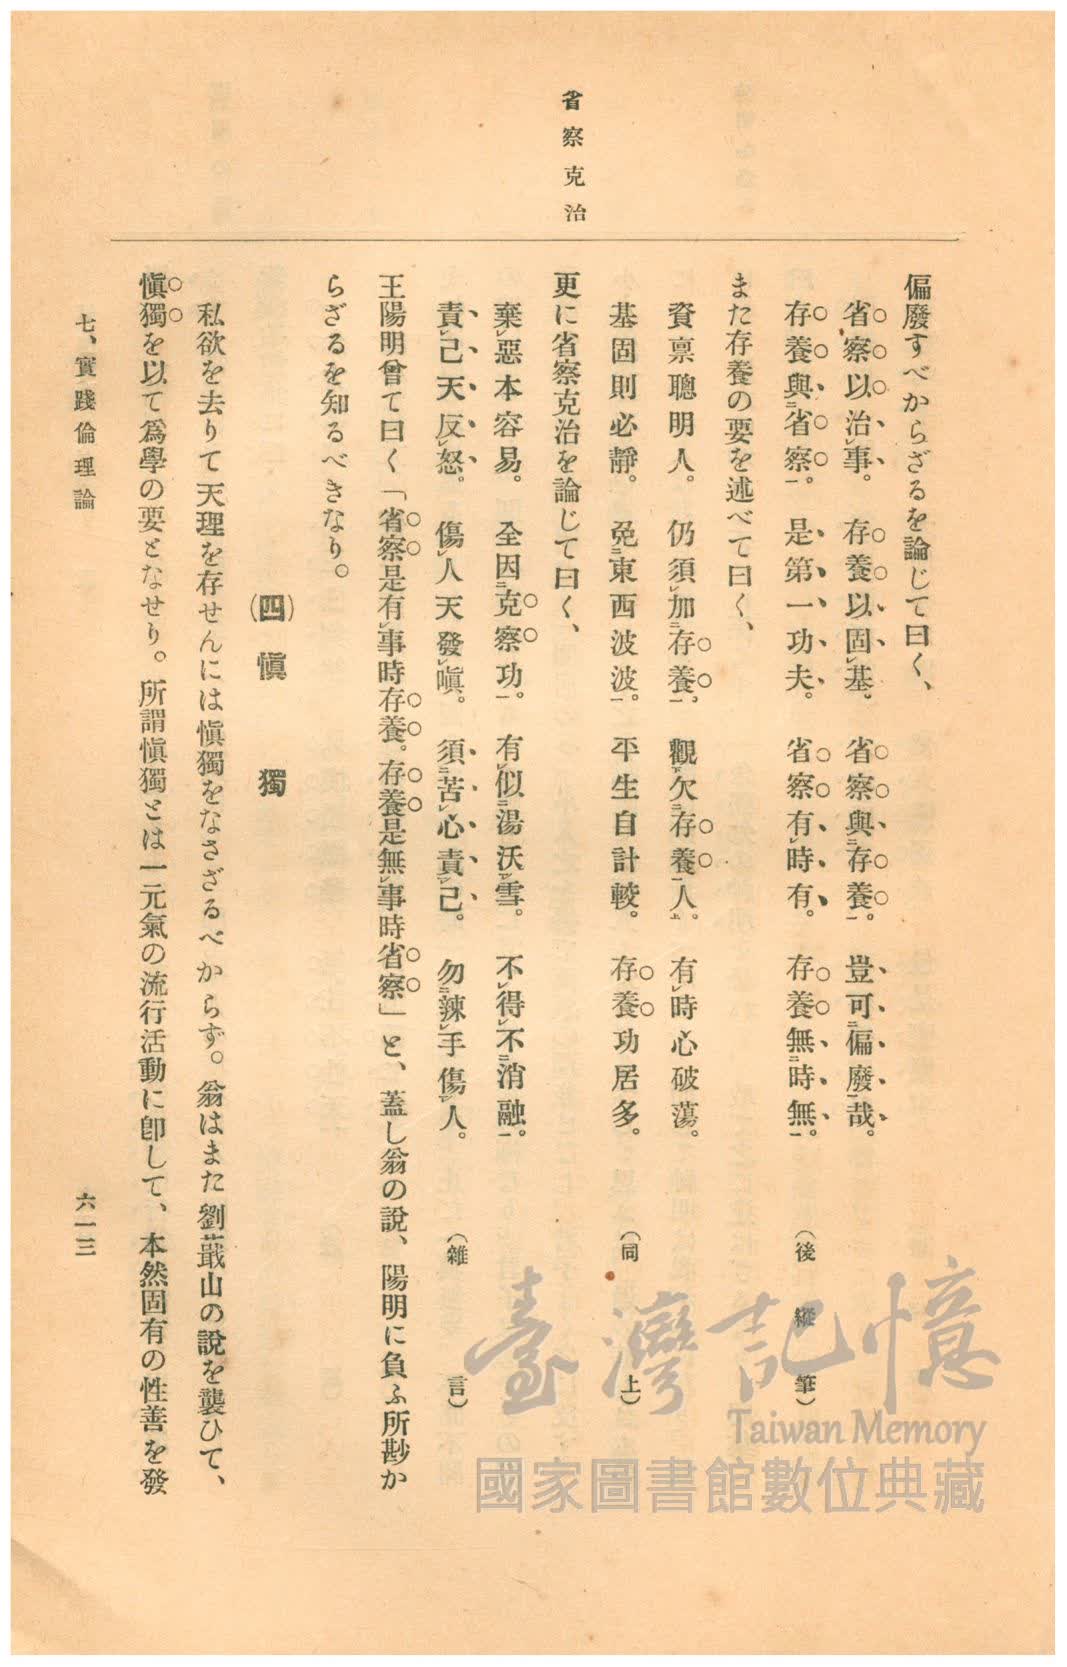 省察克治
偏廢すべからざるを論じて曰く、
省察以治㆑事。存養以固㆑基。省察與㆓存養㆒。豈可㆓偏廢㆒哉。
存養與㆓省察㆒。是第一功夫。省察有㆑時有。存養無㆓時無㆒。(後縱筆)
また存養の要を述べて曰く、
資稟聰明人。仍須㆑加㆓存養㆒。觀㆘欠㆓存養㆒人㆖。有㆑時心破蕩。
基固則必靜。免㆓東西波波㆒。平生自計較。存養功居多。(同上)
更に省察克治を論じて曰く、
棄㆑惡本容易。全因㆓克察功㆒。有㆑似㆓湯沃㆒㆑雪。不㆑得㆑不㆓消融㆒。
責㆑己天反㆑怒。傷㆑人天發㆑嗔。須㆓苦㆑心責㆒㆑己。勿㆓辣㆑手傷㆒㆑人。(雜言)
王陽明曾て曰く「省察是有㆑事時存養。存養是無㆑事時省察」と、蓋し翁の說、陽明に負ふ所尠か
らざるを知るべきなり。
(四)愼獨
私欲を去りて天理を存せんには愼獨をなさざるべからず。翁はまた劉蕺山の說を襲ひて、
愼獨を以て爲學の要となせり。所謂愼獨とは一元氣の流行活動に卽して、本然固有の性善を發
七、實踐倫理論
六一三
臺灣記憶
Taiwan Memory
國家圖書館數位典藏